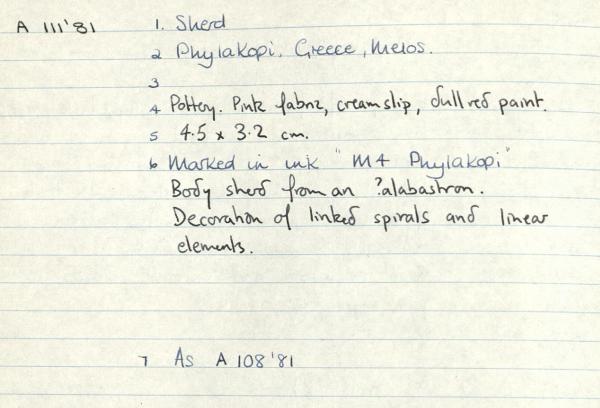 A 111'81
1. Sherd
2 Phylakopi. Greece, Melos.
3
4 Pottery. Pink fabric, cream slip, dull red paint.
5 4.5 x 3.2 cm.
6 Marked in ink "M4 Phylakopi"
Body sherd from an ?alabastron.
Decoration of linked spirals and linear
elements.
7 As A 108'81